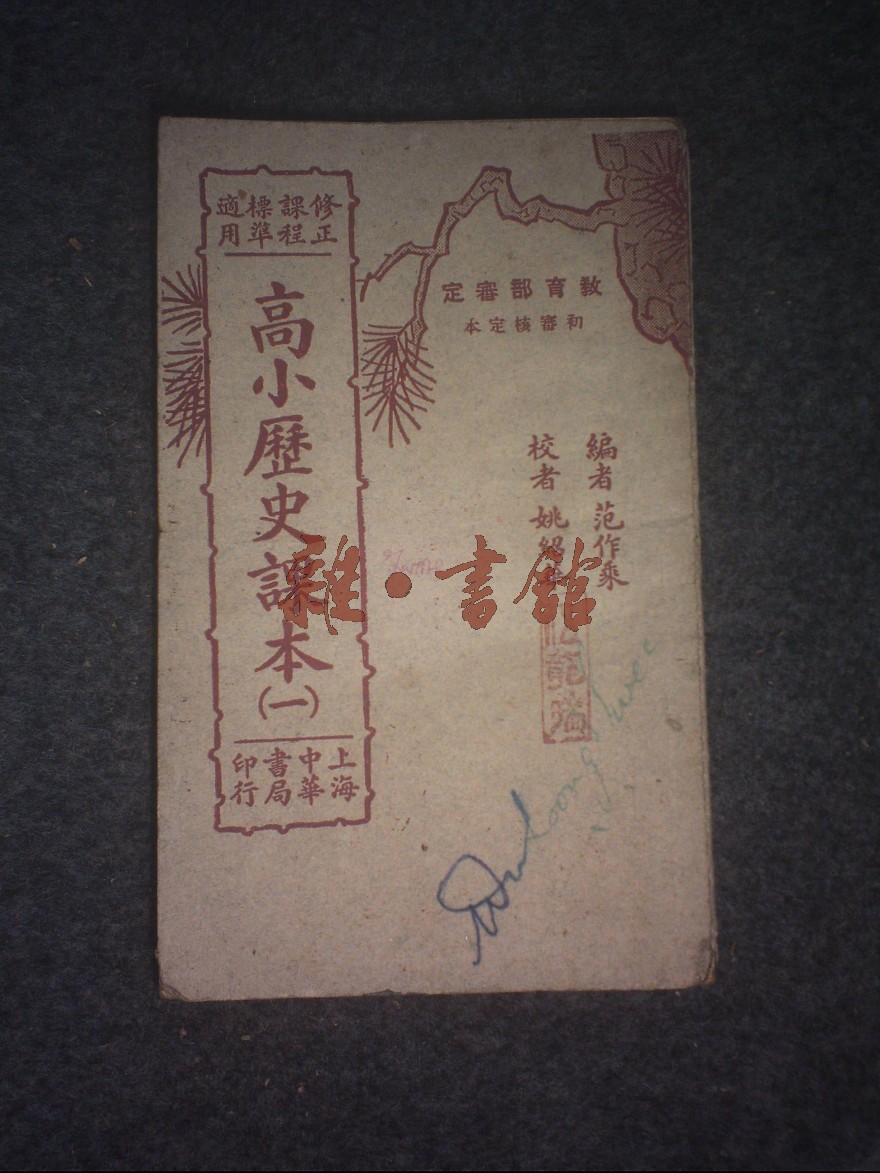 修正
課程
標準
適用
高小歷史課本
(一)
上海
中華
書局
印行
教育部審定
初審核定本
編者 范作乘
校者 姚紹
雜·書館